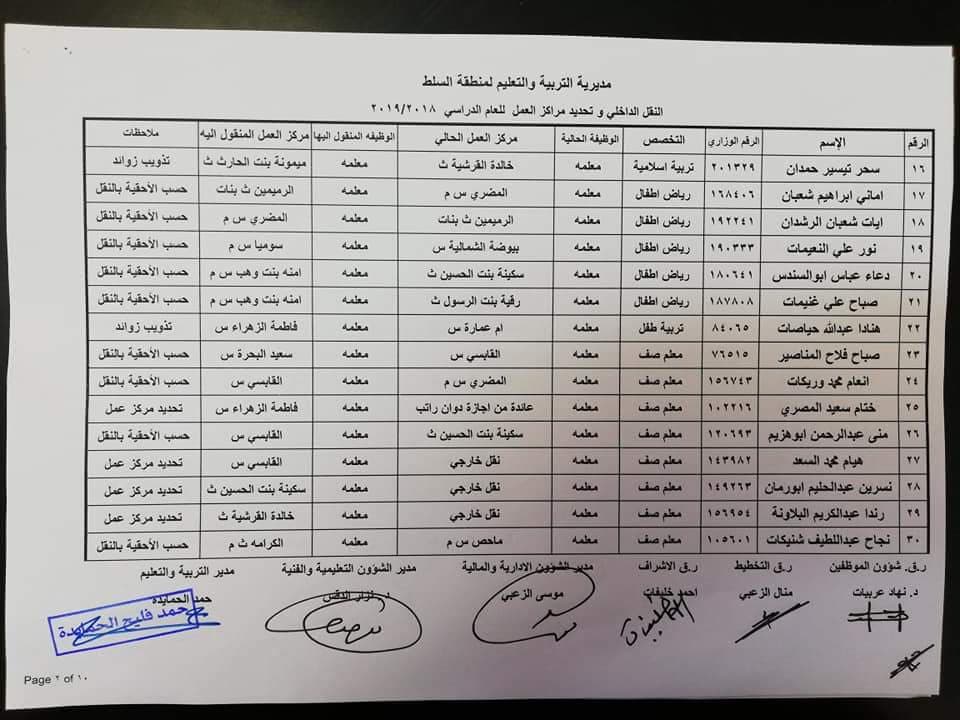 مديرية التربية والتعليم لمنطقة السلط
النقل الداخلي و تحديد مراكز العمل للعام الدراسي ٢٠١٩/٢٠١٨
الرقم الإسم الرقم الوزاري التخصص الوظيفة الحالية مركز العمل الحالي الوظيفه المنقول اليها مركز العمل المنقول اليه ملاحظات
١٦ سحر تيسير حمدان ٢٠١٣٢٩ تربية اسلامية معلمه خالدة القرشية ث معلمه ميمونة بنت الحارث ث تذويب زوائد
١٧ اماني ابراهيم شعبان ١٦٨٤٠٦ رياض اطفال معلمه المضري س م معلمه الرميمين ث بنات حسب الأحقية بالنقل
١٨ ايات شعبان الرشدان ١٩٢٢٤١ رياض اطفال معلمه الرميمين ث بنات معلمه المضري س م حسب الأحقية بالنقل
١٩ نور علي النعيمات ١٩٠٣٣٣ رياض اطفال معلمه بيوضة الشمالية س معلمه سوميا س م حسب الأحقية بالنقل
٢٠ دعاء عباس ابوالسندس ١٨٠٦٤١ رياض اطفال معلمه سكينة بنت الحسين ث معلمه امنه بنت وهب س م حسب الأحقية بالنقل
٢١ صباح علي غنيمات ١٨٧٨٠٨ رياض اطفال معلمه رقية بنت الرسول ث معلمه امنه بنت وهب س م حسب الأحقية بالنقل
٢٢ هنادا عبدالله حياصات ٨٤٠٦٥ تربية طفل معلمه ام عمارة س معلمه فاطمة الزهراء س تذويب زوائد
٢٣ صباح فلاح المناصير ٧٦٥١٥ معلم صف معلمه القابسي س معلمه سعيد البحرة س حسب الأحقية بالنقل
٢٤ انعام محمد وريكات ١٥٦٧٤٣ معلم صف معلمه المضري س م معلمه القابسي س حسب الأحقية بالنقل
٢٥ ختام سعيد المصري ١٠٢٢١٦ معلم صف معلمه عائدة من اجازة دوان راتب معلمه فاطمة الزهراء س تحديد مركز عمل
٢٦ منى عبدالرحمن ابوهزيم ١٢٠٦٩٣ معلم صف معلمه سكينة بنت الحسين ث معلمه القابسي س حسب الأحقية بالنقل
٢٧ هيام محمد السعد ١٤٣٩٨٢ معلم صف معلمه نقل خارجي معلمه القابسي س تحديد مركز عمل
٢٨ نسرين عبدالحليم ابورمان ١٤٩٢٦٣ معلم صف معلمه نقل خارجي معلمه سكينة بنت الحسين ث تحديد مركز عمل
٢٩ رندا عبدالكريم البلاونة ١٥٦٩٥٤ معلم صف معلمه نقل خارجي معلمه خالدة القرشية ث تحديد مركز عمل
٣٠ نجاح عبداللطيف شنيكات ١٠٥٦٠١ معلم صف معلمه ماحص س م معلمه الكرامه ث م حسب الأحقية بالنقل
ر.ق. شؤون الموظفين ر.ق التخطيط ر.ق الاشراف مدير الشؤون الادارية والمالية مدير الشؤون التعليمية والفنية مدير التربية والتعليم
د. نهاد عربيات منال الزعبي احمد خليفات موسى الزعبي د. نزار الدقس حمد الحمايدة
حمد فليح الحمايدة
Page ٢ of ١٠